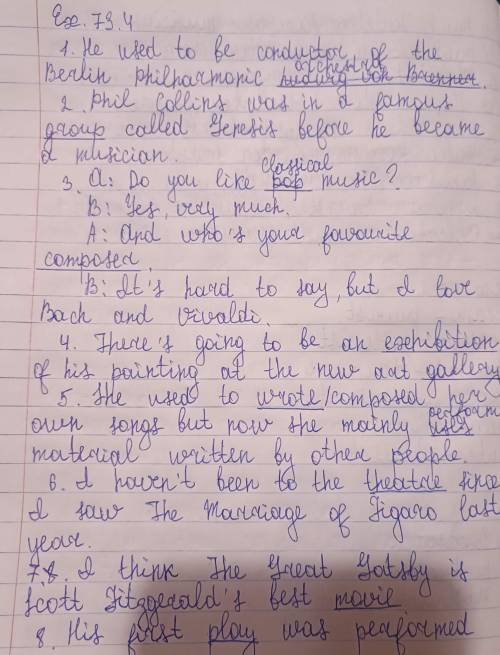 Ex. 73.4
1. He used to be conductor of the
Berlin Philharmonic orchestra
2. Phil Collins was in a famous
group called Genesis before he became
a musician.
3. A: Do you like pop classical music?
B: Yes, very much.
A: And who's your favourite
composed.
B: It's hard to say, but I love
Bach and Vivaldi.
4. There's going to be an exhibition
of his painting at the new art gallery
5. She used to wrote/composed her
own songs but now she mainly uses perform
material written by other people.
6. I haven't been to the theatre since
I saw The Marriage of Figaro last
year.
7.8. I think The Great Gatsby is
Scott Fitzgerald's best movie
8. His first play was performed